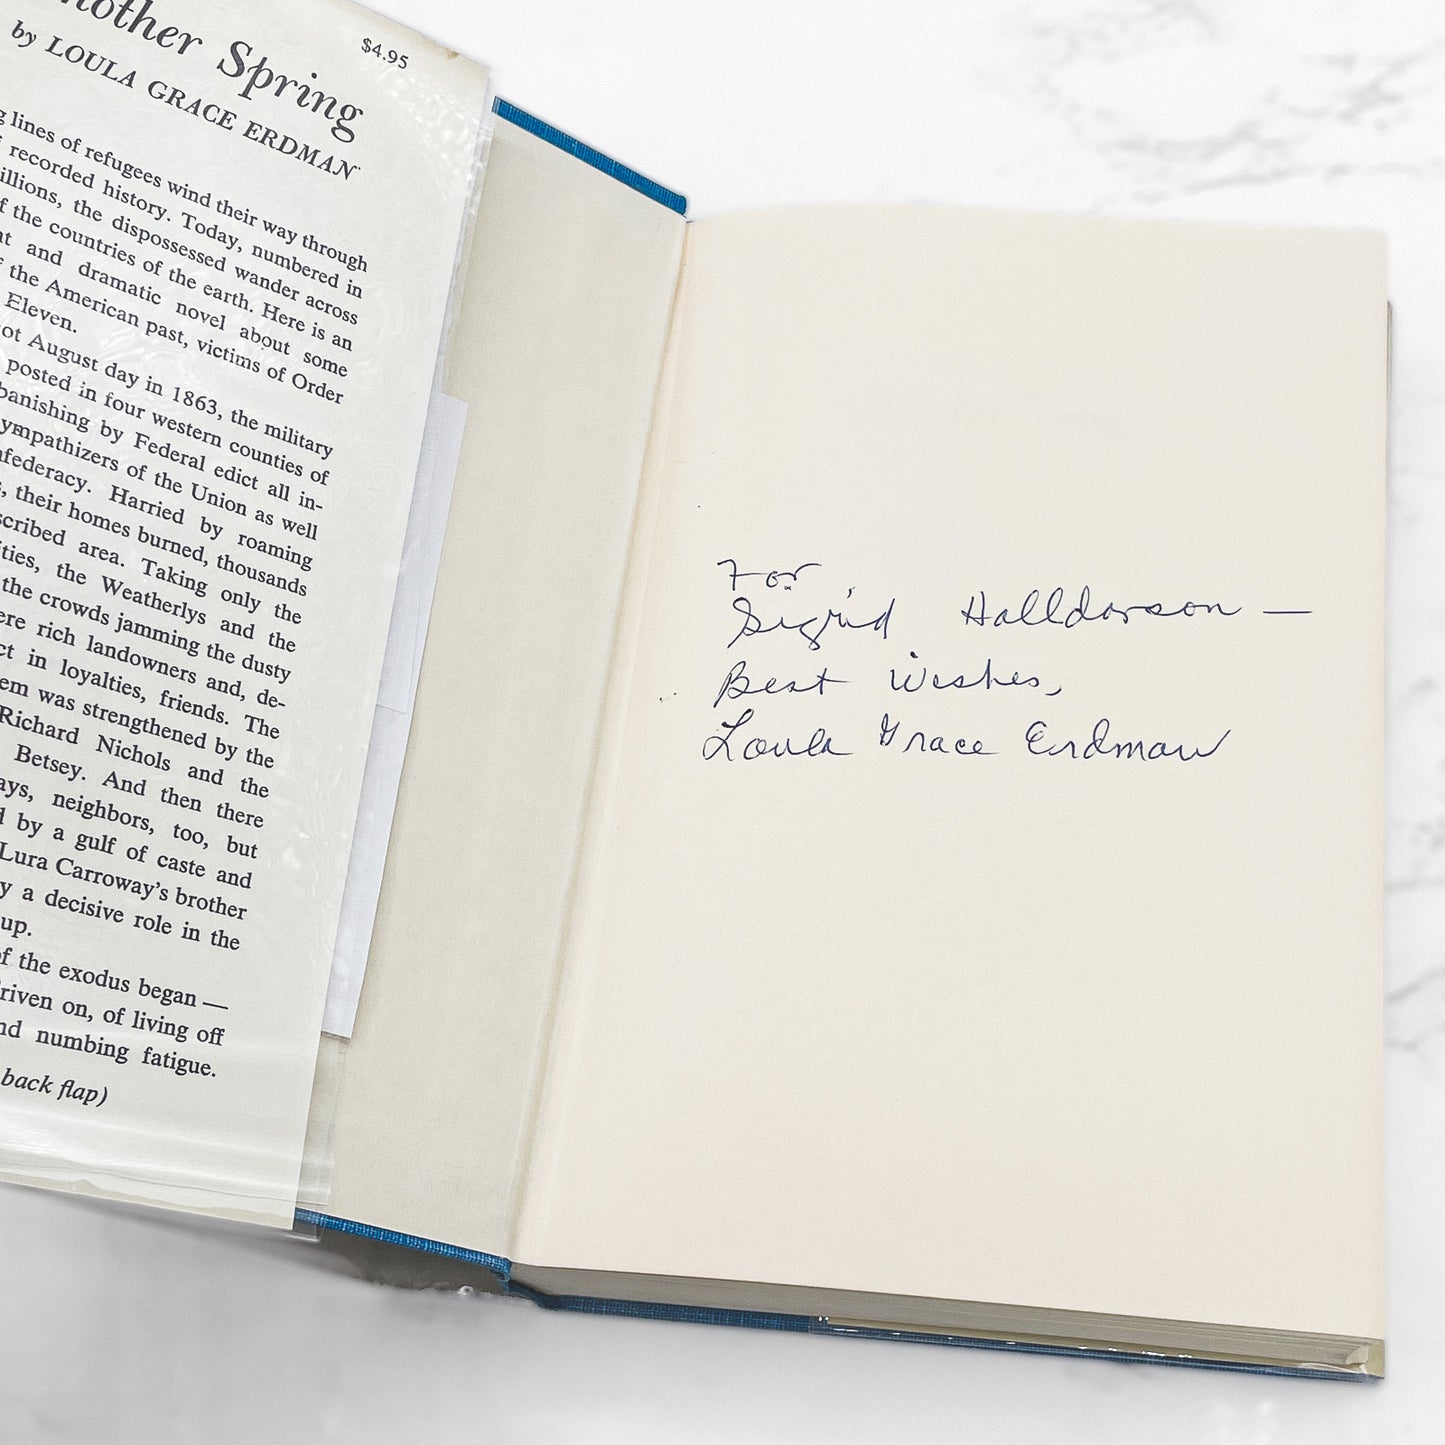 Another Spring
$4.95
by LOULA GRACE ERDMAN
lines of refugees wind their way through
recorded history. Today, numbered in
the dispossessed wander across
of the countries of the earth. Here is an
and dramatic novel about some
of the American past, victims of Order
Eleven.
August day in 1863, the military
posted in four western counties of
banishing by Federal edict all in-
sympathizers of the Union as well
Harried by roaming
their homes burned, thousands
area. Taking only the
the Weatherlys and the
the crowds jamming the dusty
rich landowners and, de-
in loyalties, friends. The
was strengthened by the
Richard Nichols and the
Betsey. And then there
neighbors, too, but
by a gulf of caste and
Lura Carroway's brother
a decisive role in the
up.
of the exodus began —
driven on, of living off
numbing fatigue.
back flap)
For
Sigrid Halldorson —
Best Wishes,
Loula Grace Erdman